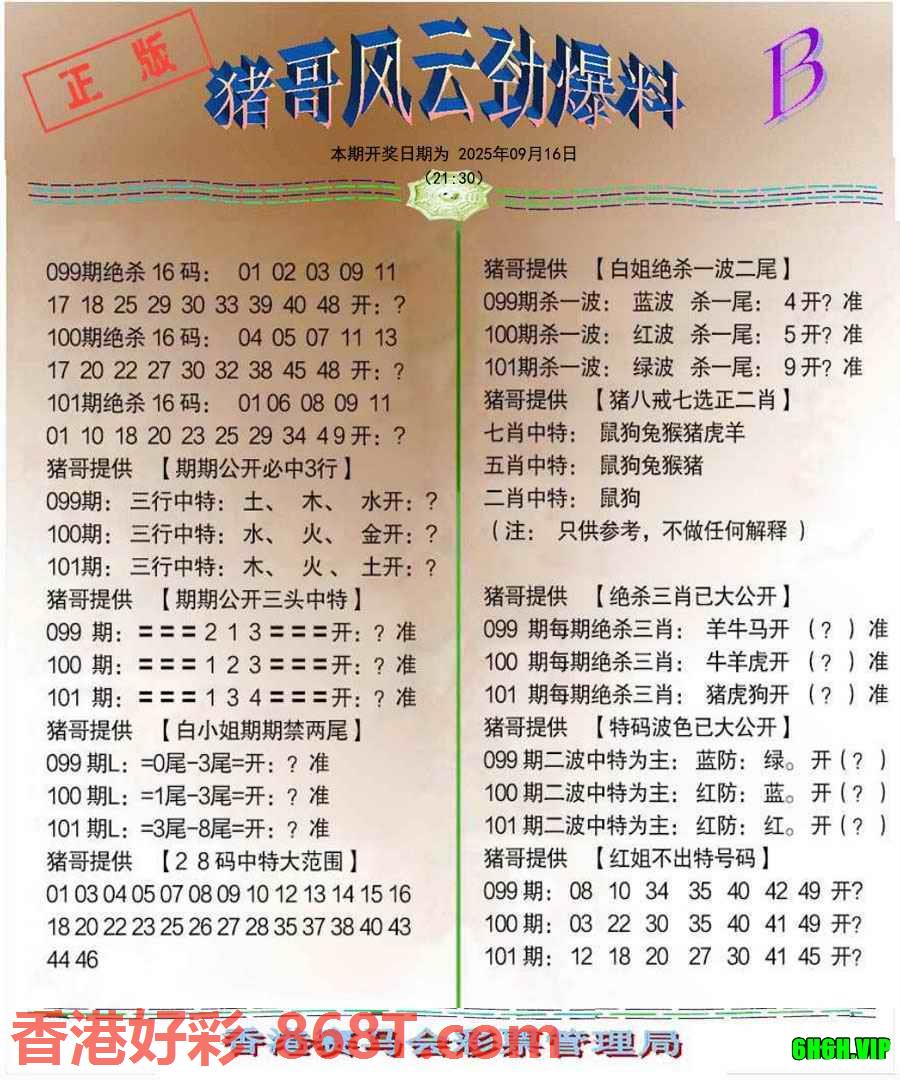 正版
猪哥风云劲爆料
B
本期开奖日期为 2025年09月16日
(21:30)
099期绝杀16码： 01 02 03 09 11
17 18 25 29 30 33 39 40 48 开：?
100期绝杀16码： 04 05 07 11 13
17 20 22 27 30 32 38 45 48 开：?
101期绝杀16码： 01 06 08 09 11
01 10 18 20 23 25 29 34 49 开：?
猪哥提供 【期期公开必中3行】
099期：三行中特：土、 木、 水开：?
100期：三行中特：水、 火、 金开：?
101期：三行中特：木、 火 、 土开：?
猪哥提供 【期期公开三头中特】
099 期：〓〓〓2 1 3〓〓〓开：? 准
100 期：〓〓〓1 2 3〓〓〓开：? 准
101 期：〓〓〓1 3 4〓〓〓开：? 准
猪哥提供 【白小姐期期禁两尾】
099 期L：=0尾-3尾=开：? 准
100 期L：=1尾-3尾=开：? 准
101 期L：=3尾-8尾=开：? 准
猪哥提供 【28码中特大范围】
01 03 04 05 07 08 09 10 12 13 14 15 16
18 20 22 23 25 26 27 28 35 37 38 40 43
44 46
猪哥提供 【白姐绝杀一波二尾】
099期杀一波： 蓝波 杀一尾： 4开? 准
100期杀一波： 红波 杀一尾： 5开? 准
101期杀一波： 绿波 杀一尾： 9开? 准
猪哥提供 【猪八戒七选正二肖】
七肖中特： 鼠狗兔猴猪虎羊
五肖中特： 鼠狗兔猴猪
二肖中特： 鼠狗
（注： 只供参考，不做任何解释 ）
猪哥提供 【绝杀三肖已大公开】
099 期每期绝杀三肖： 羊牛马开 (？ ) 准
100 期每期绝杀三肖： 牛羊虎开 (？ ) 准
101 期每期绝杀三肖： 猪虎狗开 (？ ) 准
猪哥提供 【特码波色已大公开】
099期二波中特为主：蓝防：绿。开(？ )
100期二波中特为主：红防：蓝。开(？ )
101期二波中特为主：红防：红。开(？ )
猪哥提供 【红姐不出特号码】
099期： 08 10 34 35 40 42 49 开?
100期： 03 22 30 35 40 41 49 开?
101期： 12 18 20 27 30 41 45 开?
香港好彩 868T.com
香港赛马会彩票管理局
6H6H.VIP